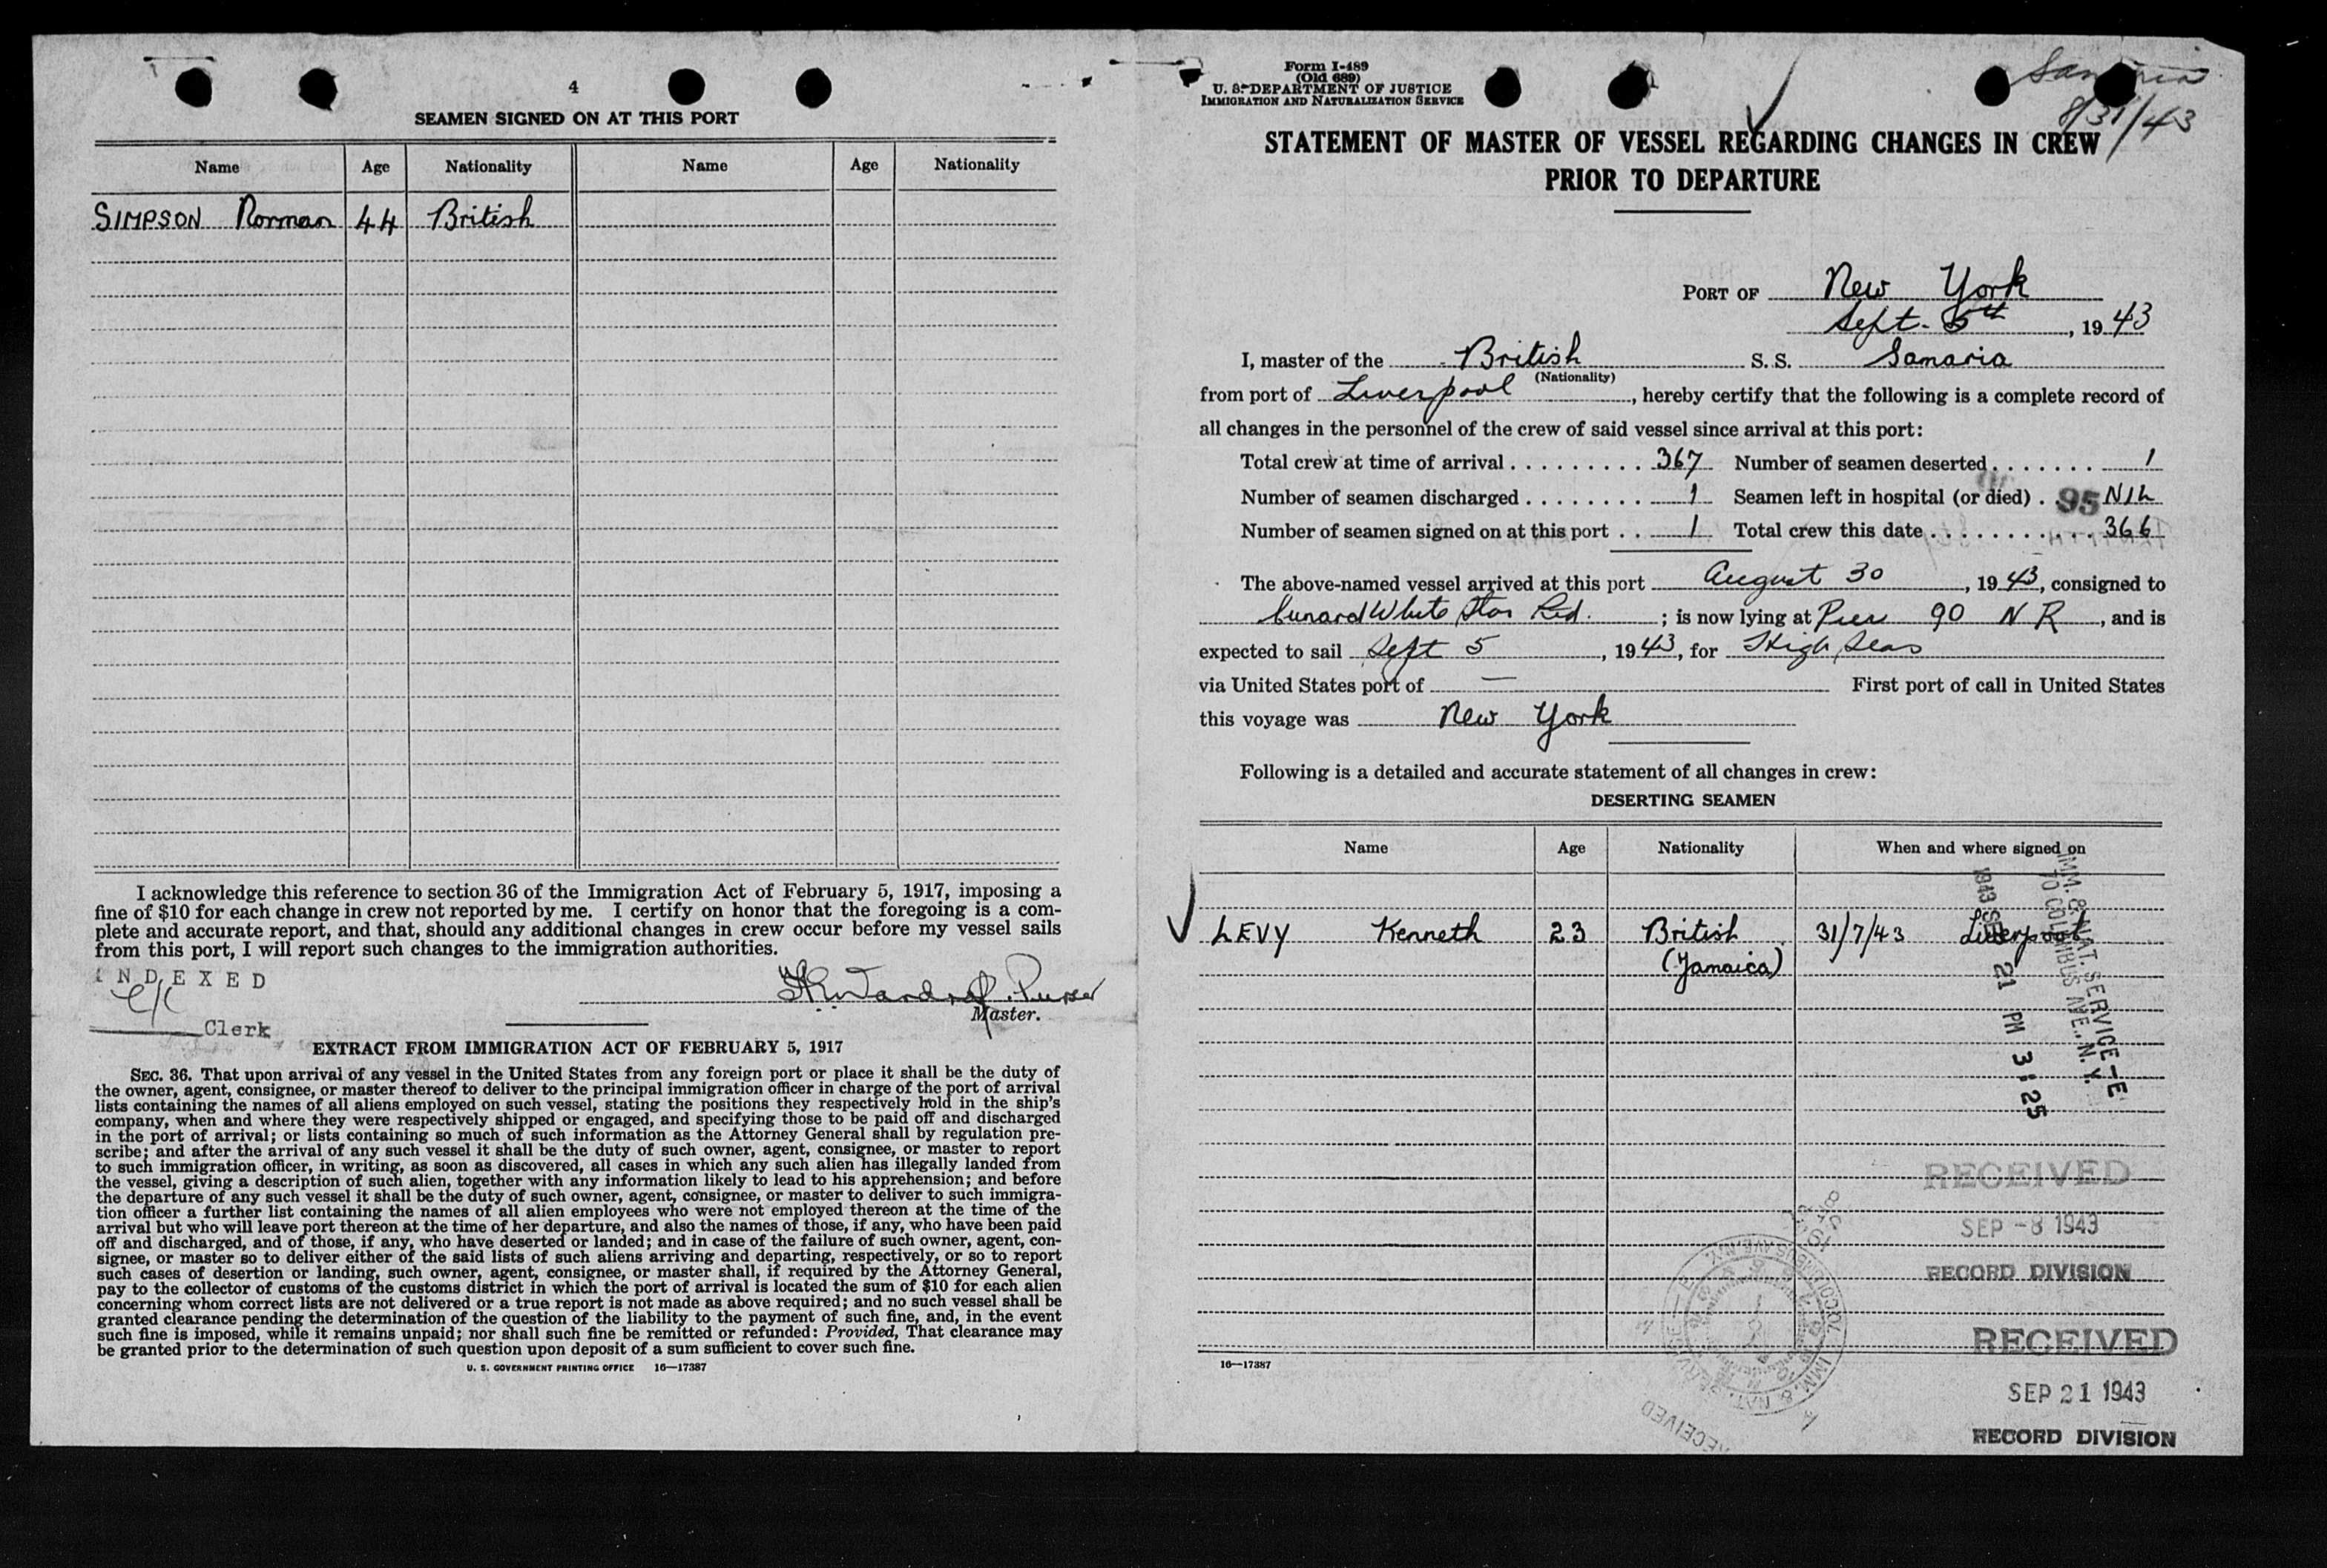 4
SEAMEN SIGNED ON AT THIS PORT
Name Age Nationality Name Age Nationality
SIMPSON Norman 44 British
I acknowledge this reference to section 36 of the Immigration Act of February 5, 1917, imposing a
fine of $10 for each change in crew not reported by me. I certify on honor that the foregoing is a com-
plete and accurate report, and that, should any additional changes in crew occur before my vessel sails
from this port, I will report such changes to the immigration authorities.
INDEXED
Purser
Master.
Clerk
EXTRACT FROM IMMIGRATION ACT OF FEBRUARY 5, 1917
SEC. 36. That upon arrival of any vessel in the United States from any foreign port or place it shall be the duty of
the owner, agent, consignee, or master thereof to deliver to the principal immigration officer in charge of the port of arrival
lists containing the names of all aliens employed on such vessel, stating the positions they respectively hold in the ship's
company, when and where they were respectively shipped or engaged, and specifying those to be paid off and discharged
in the port of arrival; or lists containing so much of such information as the Attorney General shall by regulation pre-
scribe; and after the arrival of any such vessel it shall be the duty of such owner, agent, consignee, or master to report
to such immigration officer, in writing, as soon as discovered, all cases in which any such alien has illegally landed from
the vessel, giving a description of such alien, together with any information likely to lead to his apprehension; and before
the departure of any such vessel it shall be the duty of such owner, agent, consignee, or master to deliver to such immigra-
tion officer a further list containing the names of all alien employees who were not employed thereon at the time of the
arrival but who will leave port thereon at the time of her departure, and also the names of those, if any, who have been paid
off and discharged, and of those, if any, who have deserted or landed; and in case of the failure of such owner, agent, con-
signee, or master so to deliver either of the said lists of such aliens arriving and departing, respectively, or so to report
such cases of desertion or landing, such owner, agent, consignee, or master shall, if required by the Attorney General,
pay to the collector of customs of the customs district in which the port of arrival is located the sum of $10 for each alien
concerning whom correct lists are not delivered or a true report is not made as above required; and no such vessel shall be
granted clearance pending the determination of the question of the liability to the payment of such fine, and, in the event
such fine is imposed, while it remains unpaid; nor shall such fine be remitted or refunded: Provided, That clearance may
be granted prior to the determination of such question upon deposit of a sum sufficient to cover such fine.
U. S. GOVERNMENT PRINTING OFFICE 16—17387
Form I-489
(Old 689)
U. S. DEPARTMENT OF JUSTICE
IMMIGRATION AND NATURALIZATION SERVICE
Samaria
8/31/43
STATEMENT OF MASTER OF VESSEL REGARDING CHANGES IN CREW
PRIOR TO DEPARTURE
PORT OF New York
Sept. 5th, 1943
I, master of the British S. S. Samaria
(Nationality)
from port of Liverpool, hereby certify that the following is a complete record of
all changes in the personnel of the crew of said vessel since arrival at this port:
Total crew at time of arrival . . . . . . . . . 367 Number of seamen deserted . . . . . . . 1
Number of seamen discharged . . . . . . . . 1 Seamen left in hospital (or died) . 95 NIL
Number of seamen signed on at this port . . 1 Total crew this date . . . . . . . . . . . 366
The above-named vessel arrived at this port August 30, 1943, consigned to
Cunard White Star Ltd. ; is now lying at Pier 90 N R, and is
expected to sail Sept 5, 1943, for High Seas
via United States port of — First port of call in United States
this voyage was New York
Following is a detailed and accurate statement of all changes in crew:
DESERTING SEAMEN
Name Age Nationality When and where signed on
LEVY Kenneth 23 British 31/7/43 Liverpool
(Jamaica)
IMM. & NAT. SERVICE-E
70 COLUMBUS AVE., N. Y.
1943 SEP 21 PM 3:25
RECEIVED
SEP -8 1943
RECORD DIVISION
RECEIVED
SEP 21 1943
RECORD DIVISION
16—17387
RECEIVED